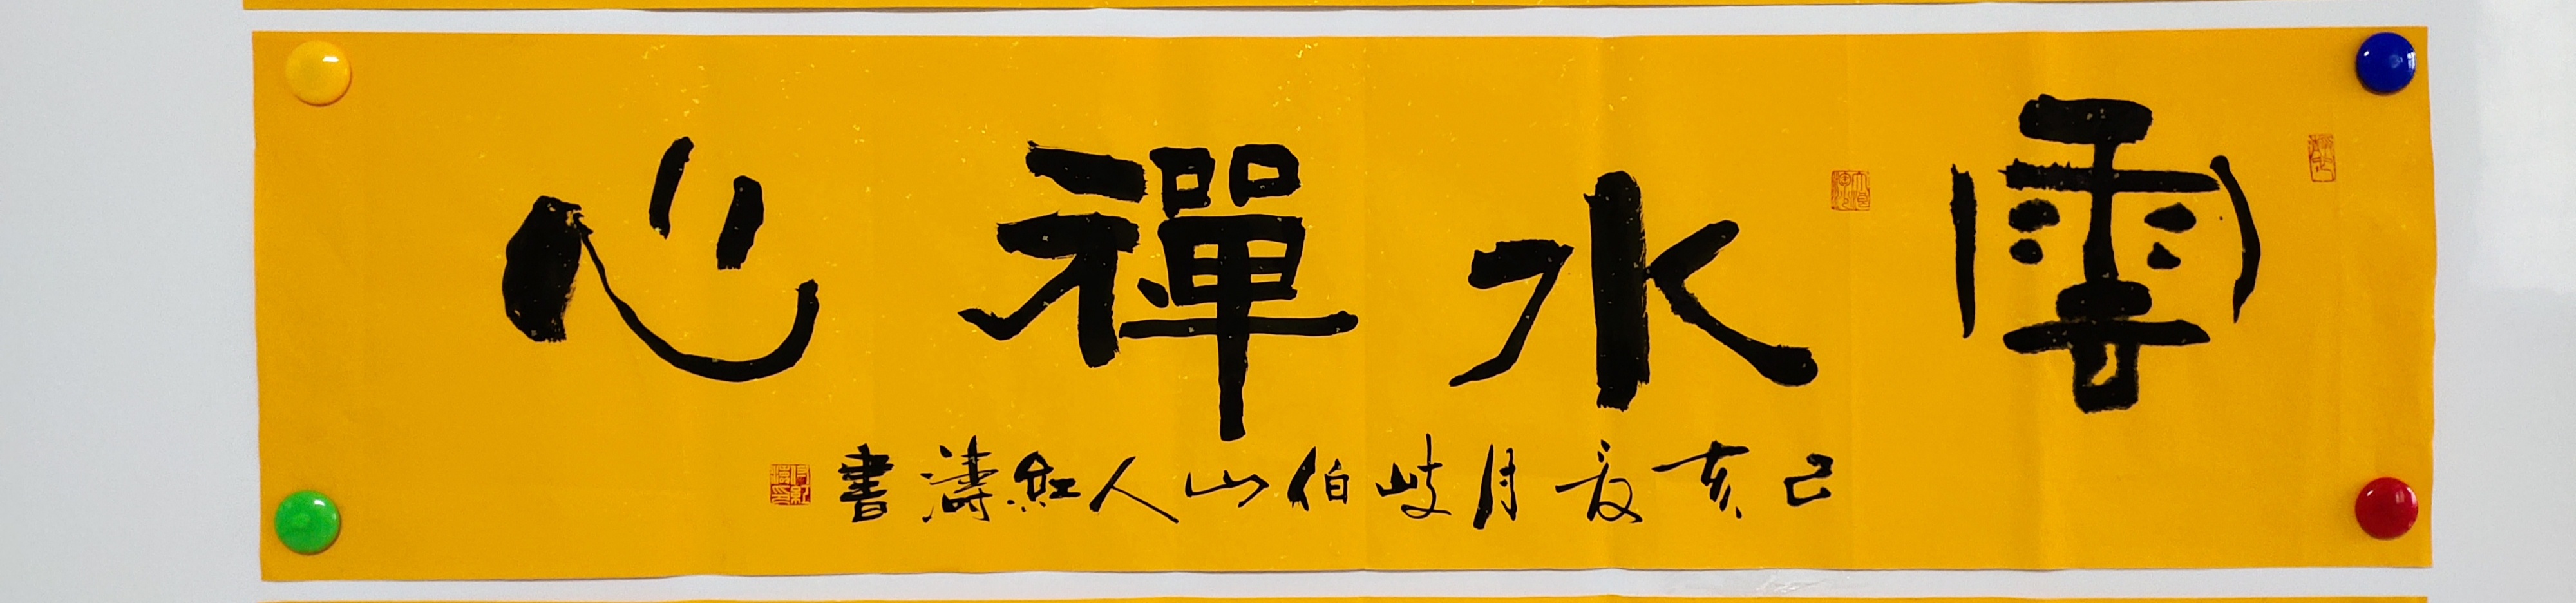 雲水禪心
己亥夏月岐伯山人紅濤書